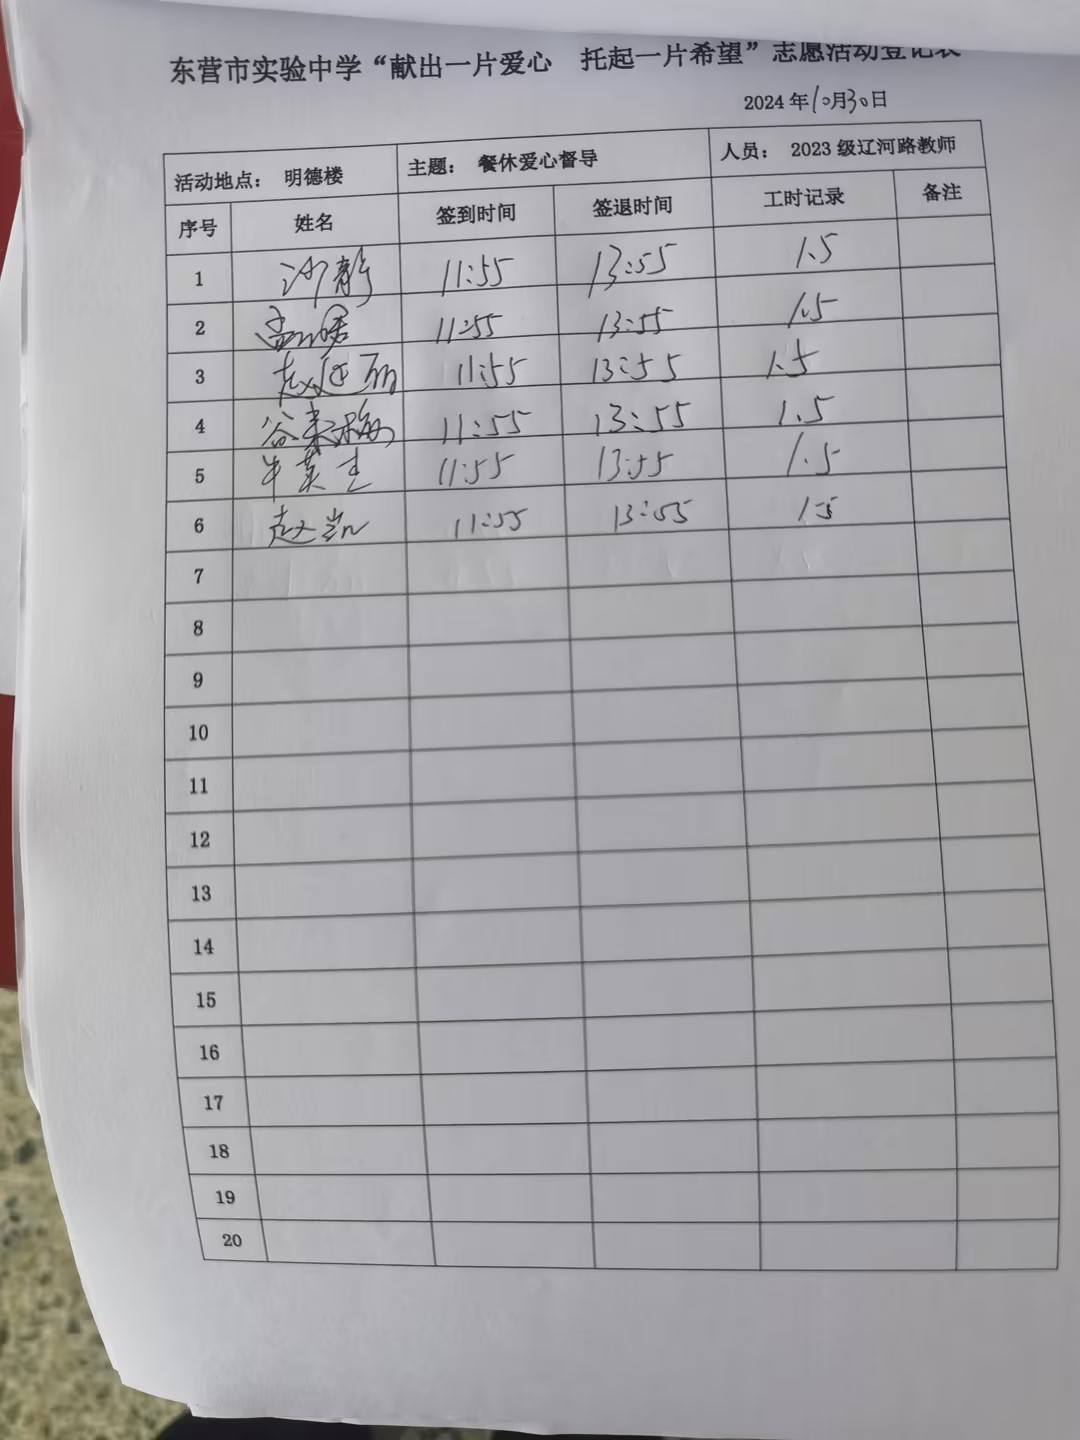 东营市实验中学“献出一片爱心 托起一片希望”志愿活动登记表
2024年10月30日
活动地点： 明德楼 主题： 餐休爱心督导 人员： 2023级辽河路教师
序号 姓名 签到时间 签退时间 工时记录 备注
1 11:55 13:55 1.5
2 11:55 13:55 1.5
3 赵延丽 11:55 13:55 1.5
4 谷来梅 11:55 13:55 1.5
5 牛英圭 11:55 13:55 1.5
6 赵凯 11:55 13:55 1.5
7
8
9
10
11
12
13
14
15
16
17
18
19
20